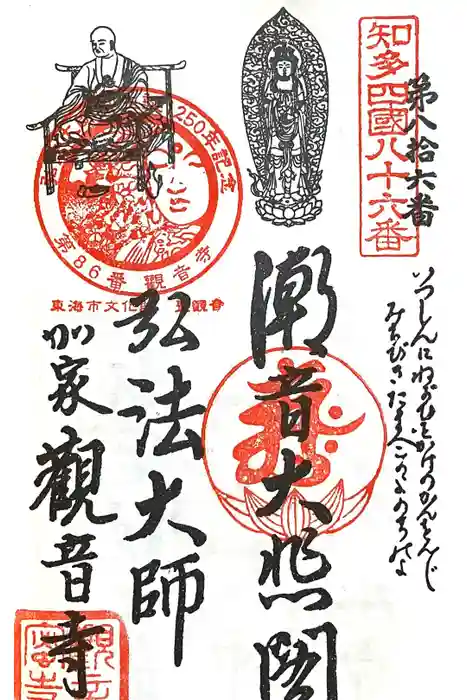 知多四國八十六番
第八拾六番
いつしんにねがひをかけのかんおんじ
みちびきたまへこのよのちのよ
潮音大悲閣
弘法大師
加家 觀音寺
250年記念
第86番 觀音寺
東海市文化
觀音